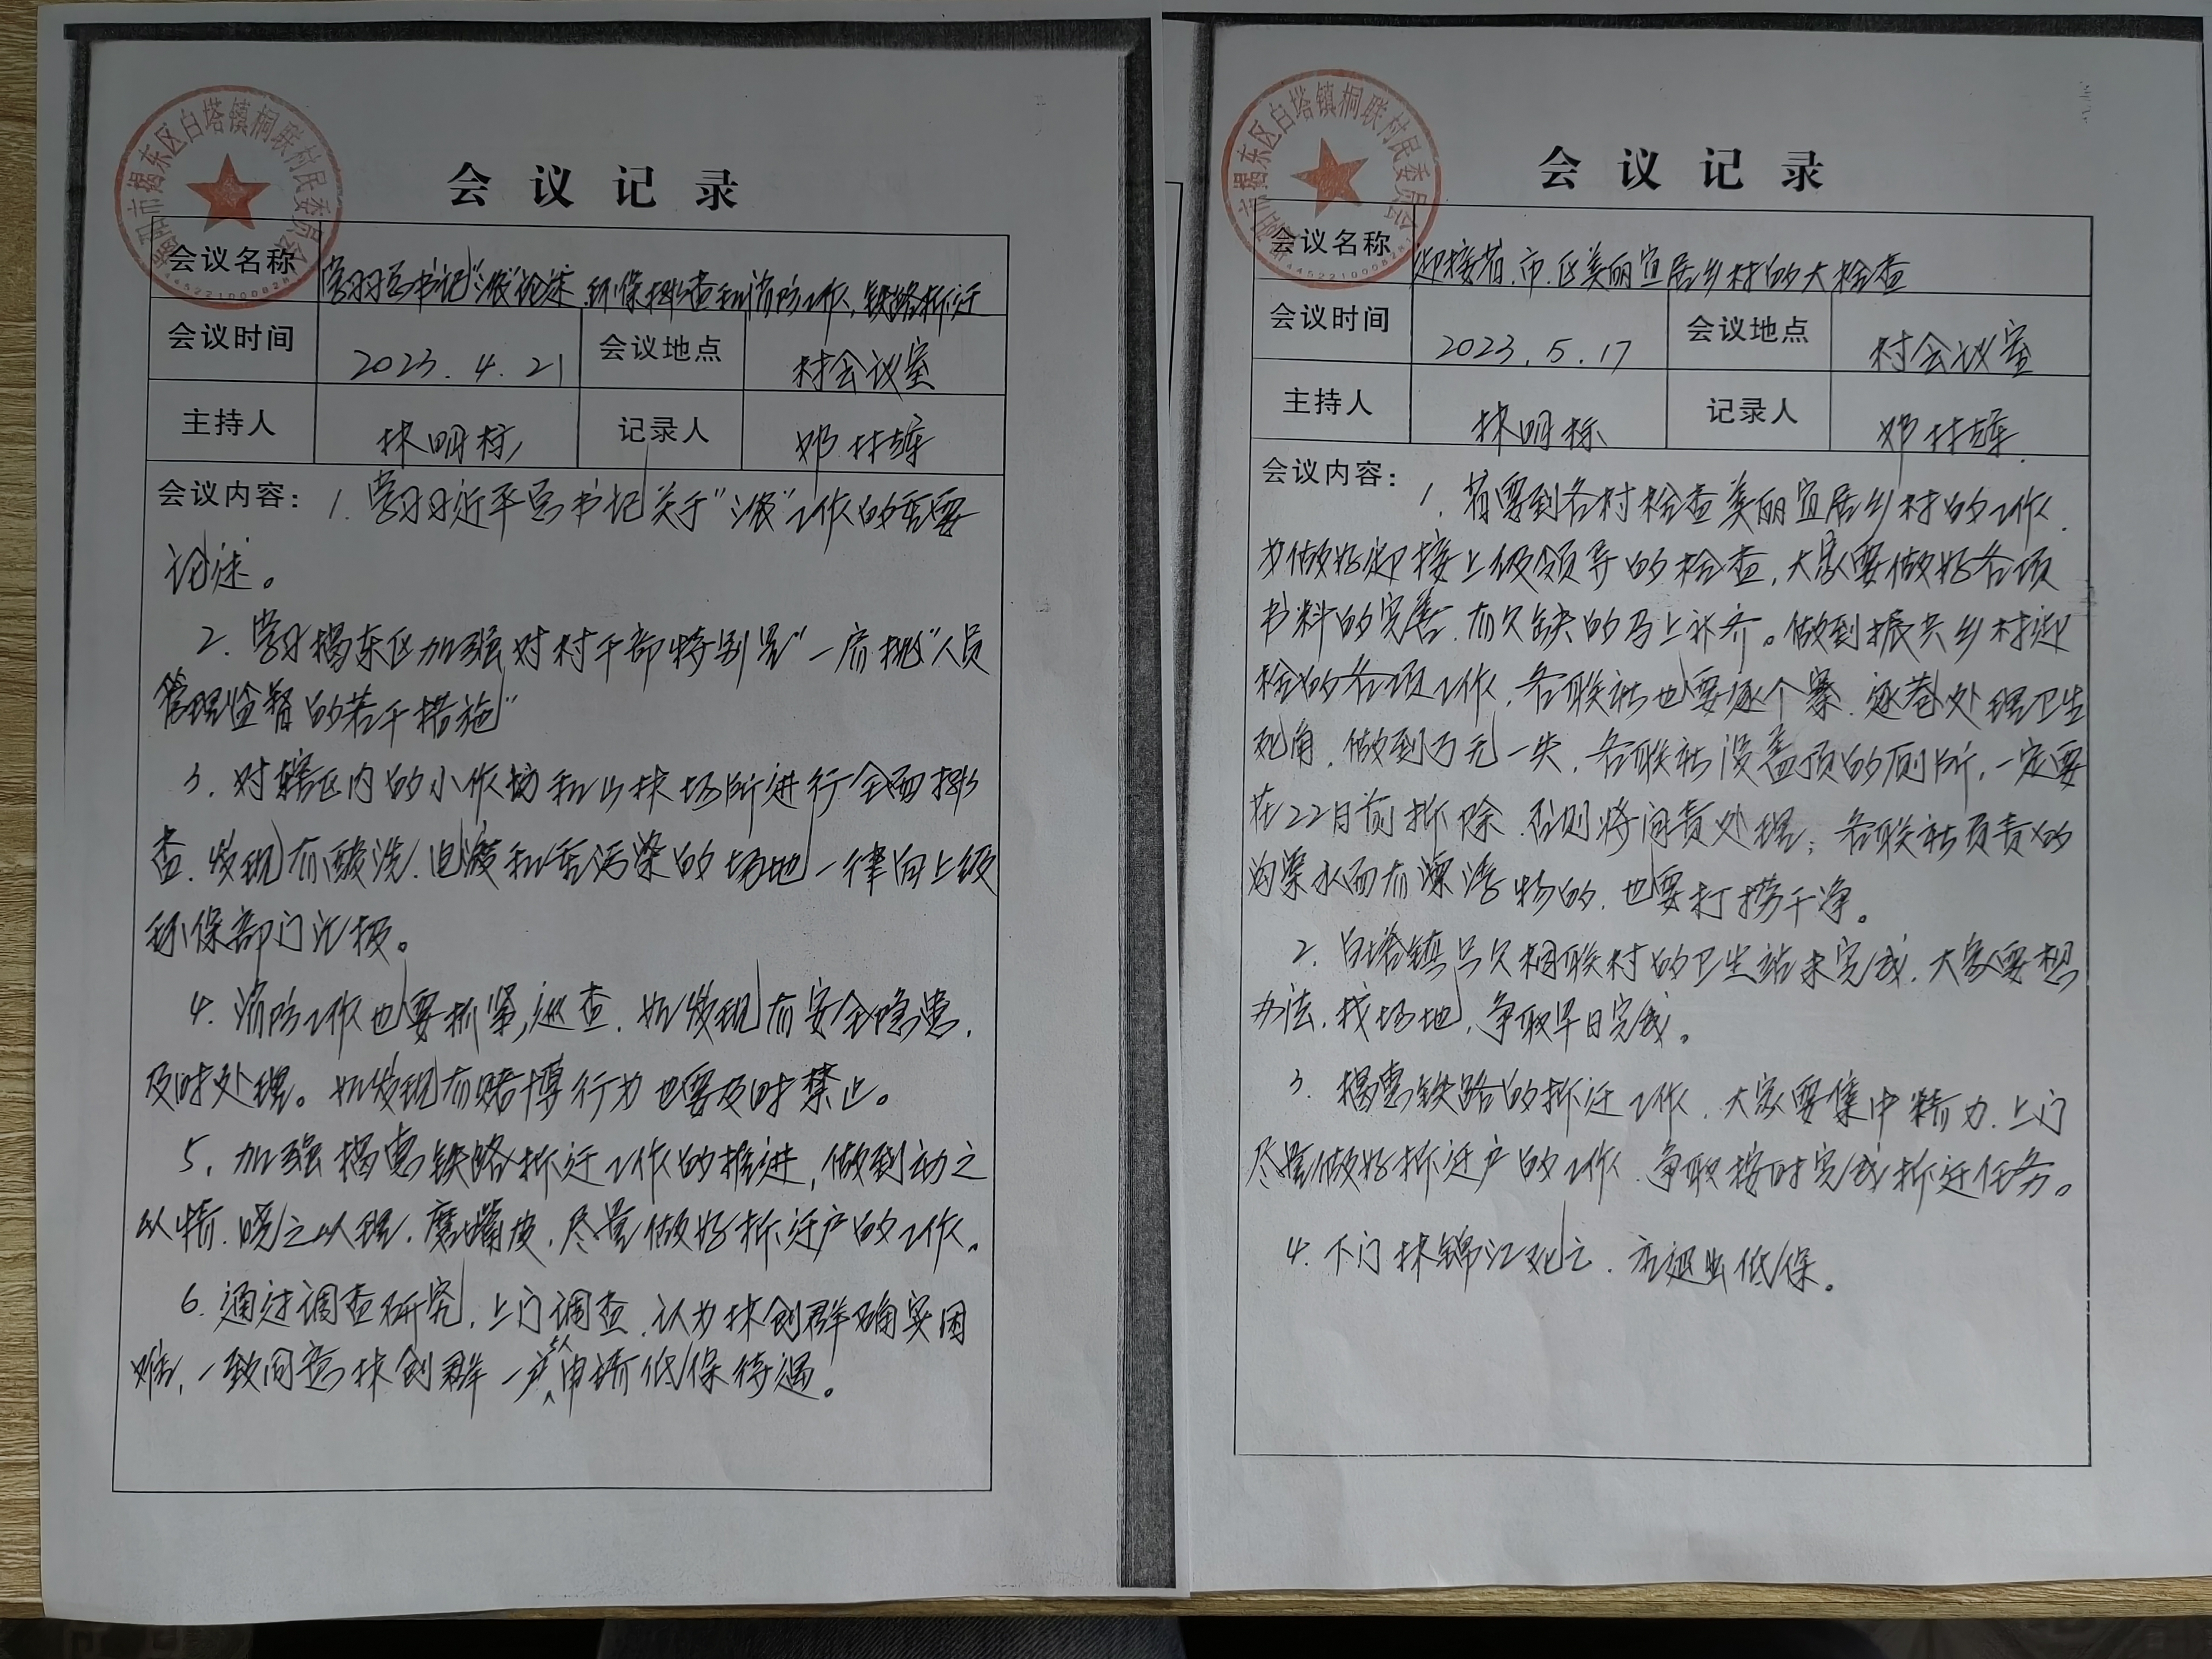 会议记录
揭阳市揭东区白塔镇桐联村民委员会
会议名称
学习习总书记“三农”论述、环保排查和消防工作、铁路拆迁
会议时间
2023.4.21
会议地点
村会议室
主持人
林明标
记录人
邓林雄
会议内容：
1. 学习习近平总书记关于“三农”工作的重要
论述。
2. 学习揭东区加强对村干部特别是“一肩挑”人员
管理监督的若干措施”
3. 对辖区内的小作坊和山林场所进行全面排
查，发现有酸洗、电渡和重污染的场地一律向上级
环保部门汇报。
4. 消防工作也要抓紧巡查，如发现有安全隐患，
及时处理。如发现有赌博行为也要及时禁止。
5. 加强揭惠铁路拆迁工作的推进，做到动之
以情，晓之以理，磨嘴皮，尽量做好拆迁户的工作。
6. 通过调查研究，上门调查，认为林创群确实困
难，一致同意林创群一户5人申请低保待遇。
会议记录
揭阳市揭东区白塔镇桐联村民委员会
会议名称
迎接省、市、区美丽宜居乡村的大检查
会议时间
2023.5.17
会议地点
村会议室
主持人
林明标
记录人
邓林雄
会议内容：
1. 省要到各村检查美丽宜居乡村的工作，
为做好迎接上级领导的检查，大家要做好各项
书料的完善，有欠缺的马上补齐。做到振兴乡村迎
检的各项工作，各联社也要逐个寨、逐巷处理卫生
死角，做到万无一失，各联社没盖顶的厕所，一定要
在22日前拆除，否则将问责处理；各联社负责的
沟渠水面有漂浮物的，也要打捞干净。
2. 白塔镇只欠桐联村的卫生站未完成，大家要想
办法，找场地，争取早日完成。
3. 揭惠铁路的拆迁工作，大家要集中精力，上门
尽量做好拆迁户的工作，争取按时完成拆迁任务。
4. 下门林锦江死亡，应退出低保。